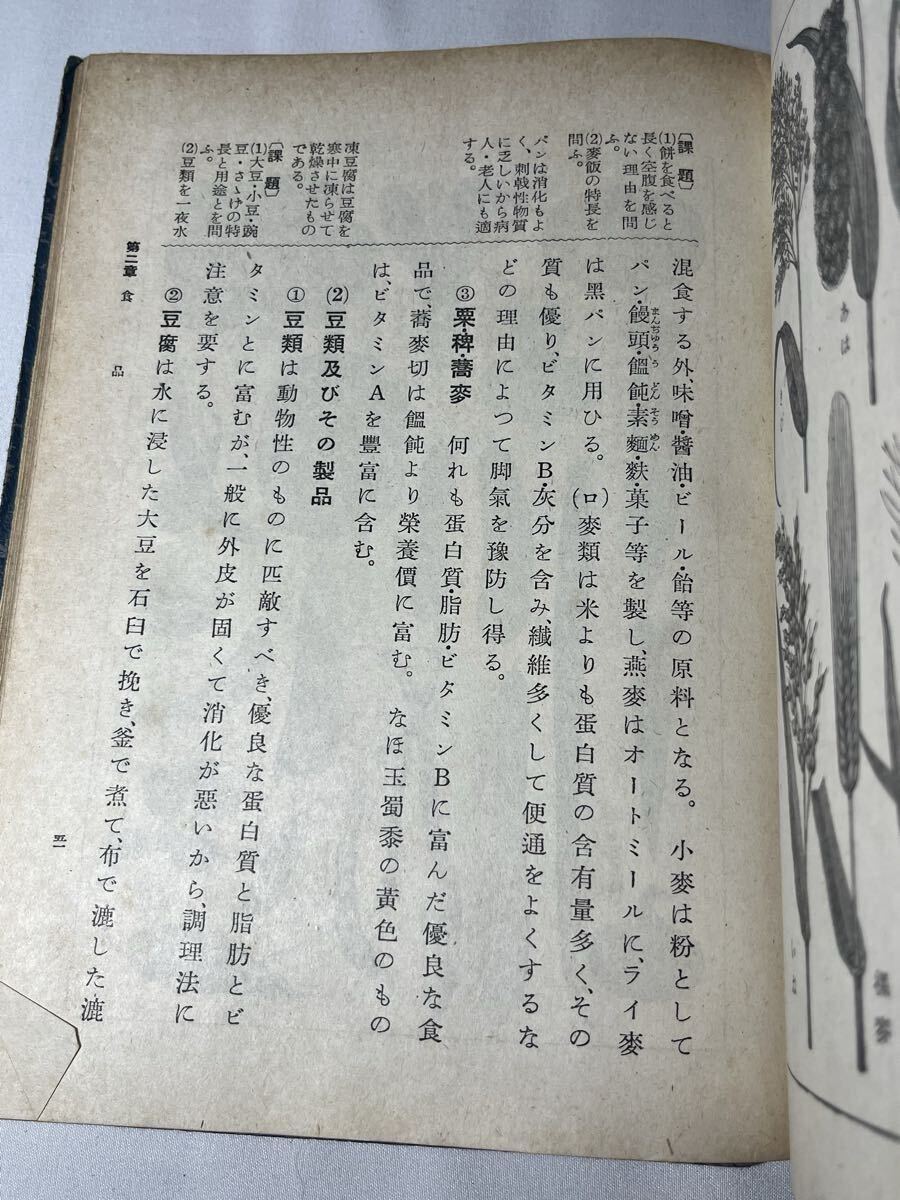 〔課題〕
(1)餅を食べると
長く空腹を感じ
ない理由を問
ふ。
(2)麥飯の特長を
問ふ。
パンは消化もよ
く、刺戟性物質
に乏しいから病
人・老人にも適
する。
凍豆腐は豆腐を
寒中に凍らせて
乾燥させたもの
である。
〔課題〕
(1)大豆・小豆・豌
豆・さゝげの特
長と用途とを問
ふ。
(2)豆類を一夜水
混食する外、味噌・醬油・ビール・飴等の原料となる。　小麥は粉として
パン・饅頭・饂飩・素麵・麩・菓子等を製し、燕麥はオートミールに、ライ麥
まんぢゆう　う　どん　そう　めん
は黑パンに用ひる。　(ロ)麥類は米よりも蛋白質の含有量多く、その
質も優り、ビタミンB・灰分を含み、纎維多くして便通をよくするな
どの理由によつて脚氣を豫防し得る。
③粟・稗・蕎麥　何れも蛋白質・脂肪・ビタミンBに富んだ優良な食
品で、蕎麥切は饂飩より榮養價に富む。　なほ玉蜀黍の黃色のもの
は、ビタミンAを豐富に含む。
(2)豆類及びその製品
①豆類は動物性のものに匹敵すべき、優良な蛋白質と脂肪とビ
タミンとに富むが、一般に外皮が固くて消化が惡いから、調理法に
注意を要する。
②豆腐は水に浸した大豆を石臼で挽き、釜で煮て、布で漉した漉
第二章　食　品
五一
あは
燕麥